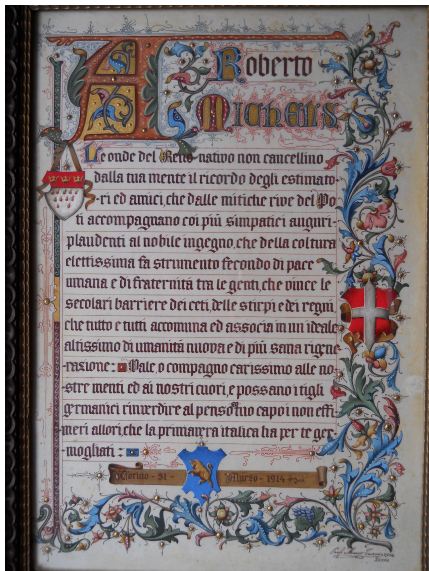 A Roberto
Michels
Le onde del Reno nativo non cancellino
dalla tua mente il ricordo degli estimato-
ri ed amici, che dalle mitiche rive del Po
ti accompagnano coi più simpatici auguri
plaudenti al nobile ingegno, che della coltura
elettissima fa strumento fecondo di pace
umana e di fraternità tra le genti, che vince le
secolari barriere dei ceti, delle stirpi e dei regni,
che tutto e tutti accomuna ed associa in un ideale
altissimo di umanità nuova e di più sana rigene-
razione: Vale, o compagno carissimo alle no-
stre menti ed ai nostri cuori, e possano i tigli
germanici rinverdire al penso tuo capo i non effi-
meri allori, che la primavera italica ha per te ger-
mogliati:
Torino - 31 Marzo - 1914